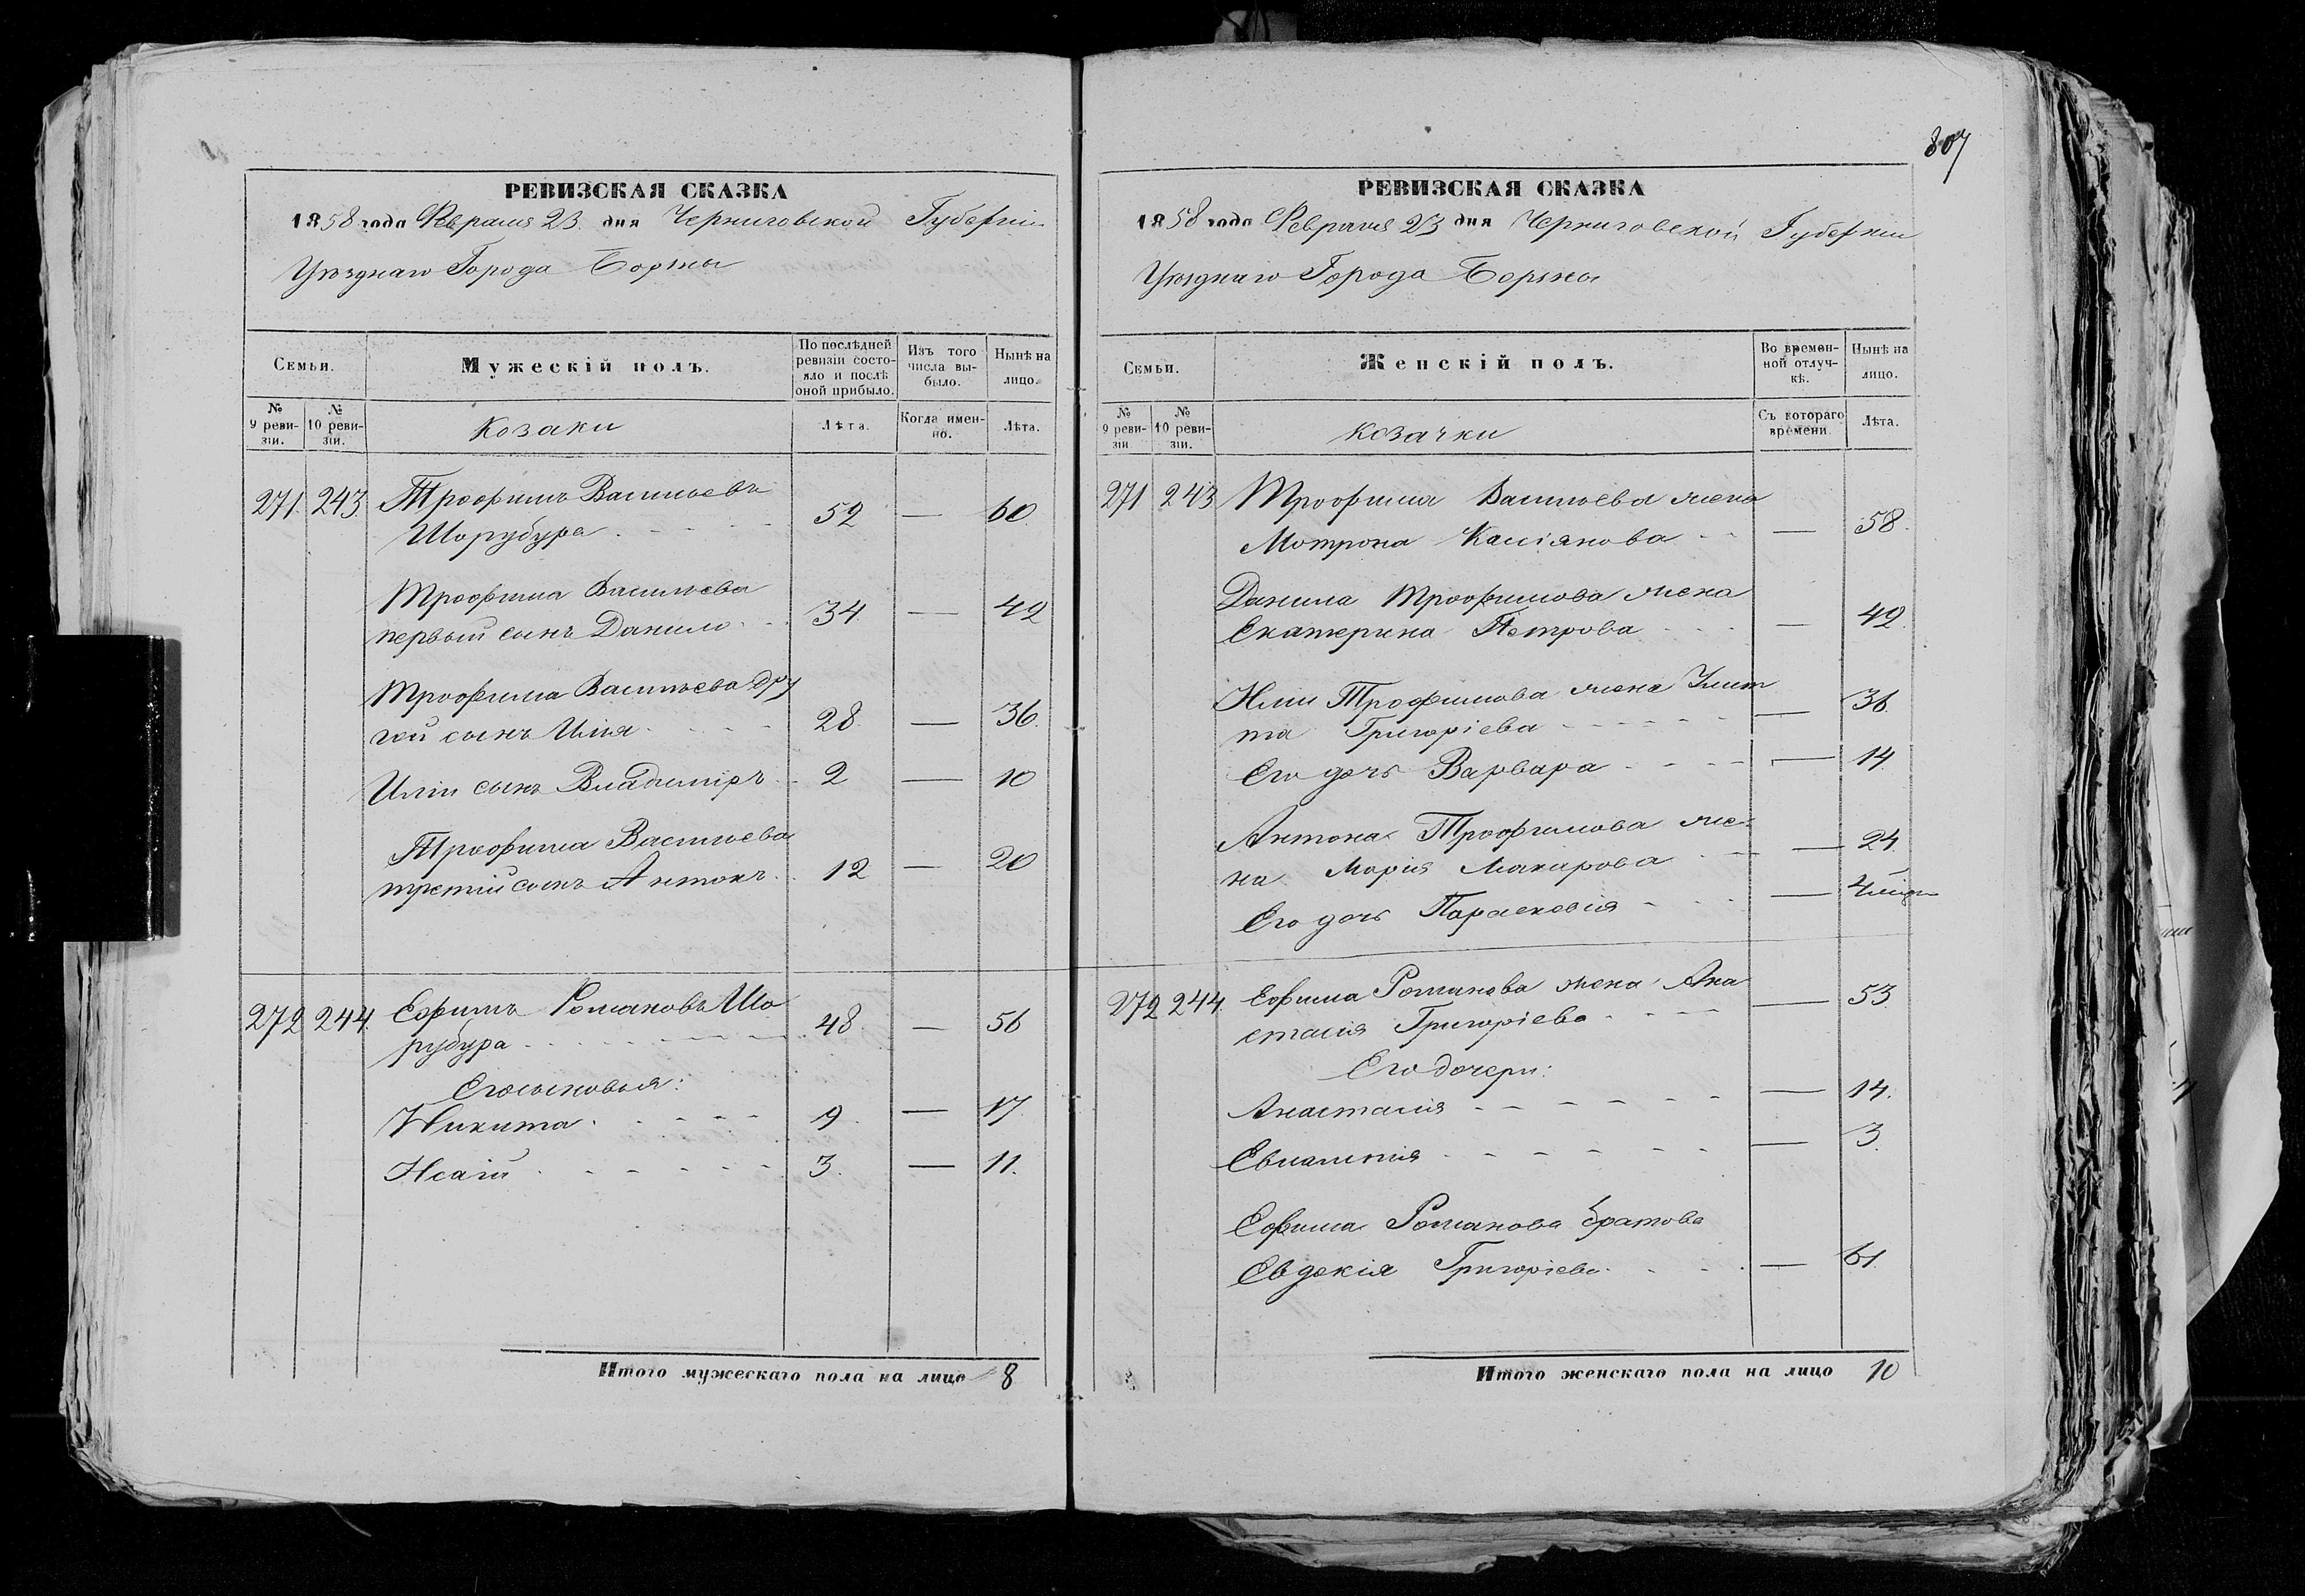 807
РЕВИЗСКАЯ СКАЗКА
1858 года Февраля 23 дня Черниговской Губерніи
Уѣзднаго Города Борзны
Семьи.
Мужескій полъ.
По послѣдней ревизіи состояло и послѣ оной прибыло.
Изъ того числа выбыло.
Нынѣ на лицо.
№ 9 ревизіи.
№ 10 ревизіи.
Козаки
Лѣта.
Когда именно.
Лѣта.
271. 243. Трофимъ Васильевъ
Шорубура 52 — 60
Трофима Васильева
первый сынъ Данило 34 — 42
Трофима Васильева дру
гой сынъ Илья 28 — 36.
Иліи сынъ Владиміръ 2 — 10
Трофима Васильева
третій сынъ Антонъ 12 — 20
272 244. Ефимъ Романовъ Шо
рубура 48 — 56
Его сыновья:
Никита 9 — 17.
Исаій 3. — 11.
Итого мужескаго пола на лицо 8
РЕВИЗСКАЯ СКАЗКА
1858 года Февраля 23 дня Черниговской Губерніи
Уѣзднаго Города Борзны
Семьи.
Женскій полъ.
Во временной отлучкѣ.
Нынѣ на лицо.
№ 9 ревизіи
№ 10 ревизіи.
Козачки
Съ котораго времени.
Лѣта.
271 243 Трофима Васильева жена
Мотрона Касіянова — 58.
Данила Трофимова жена
Екатерина Петрова — 42.
Иліи Трофимова жена Улит
та Григоріева — 36.
Его дочь Варвара — 14.
Антона Трофимова же-
на Марія Макарова — 24.
Его дочь Параскевія — 4
272 244. Ефима Романова жена Ана
стасія Григоріева — 53
Его дочери:
Анастасія — 14.
Евлампія — 3.
Ефима Романова братова
Евдокія Григоріева — 61.
Итого женскаго пола на лицо 10